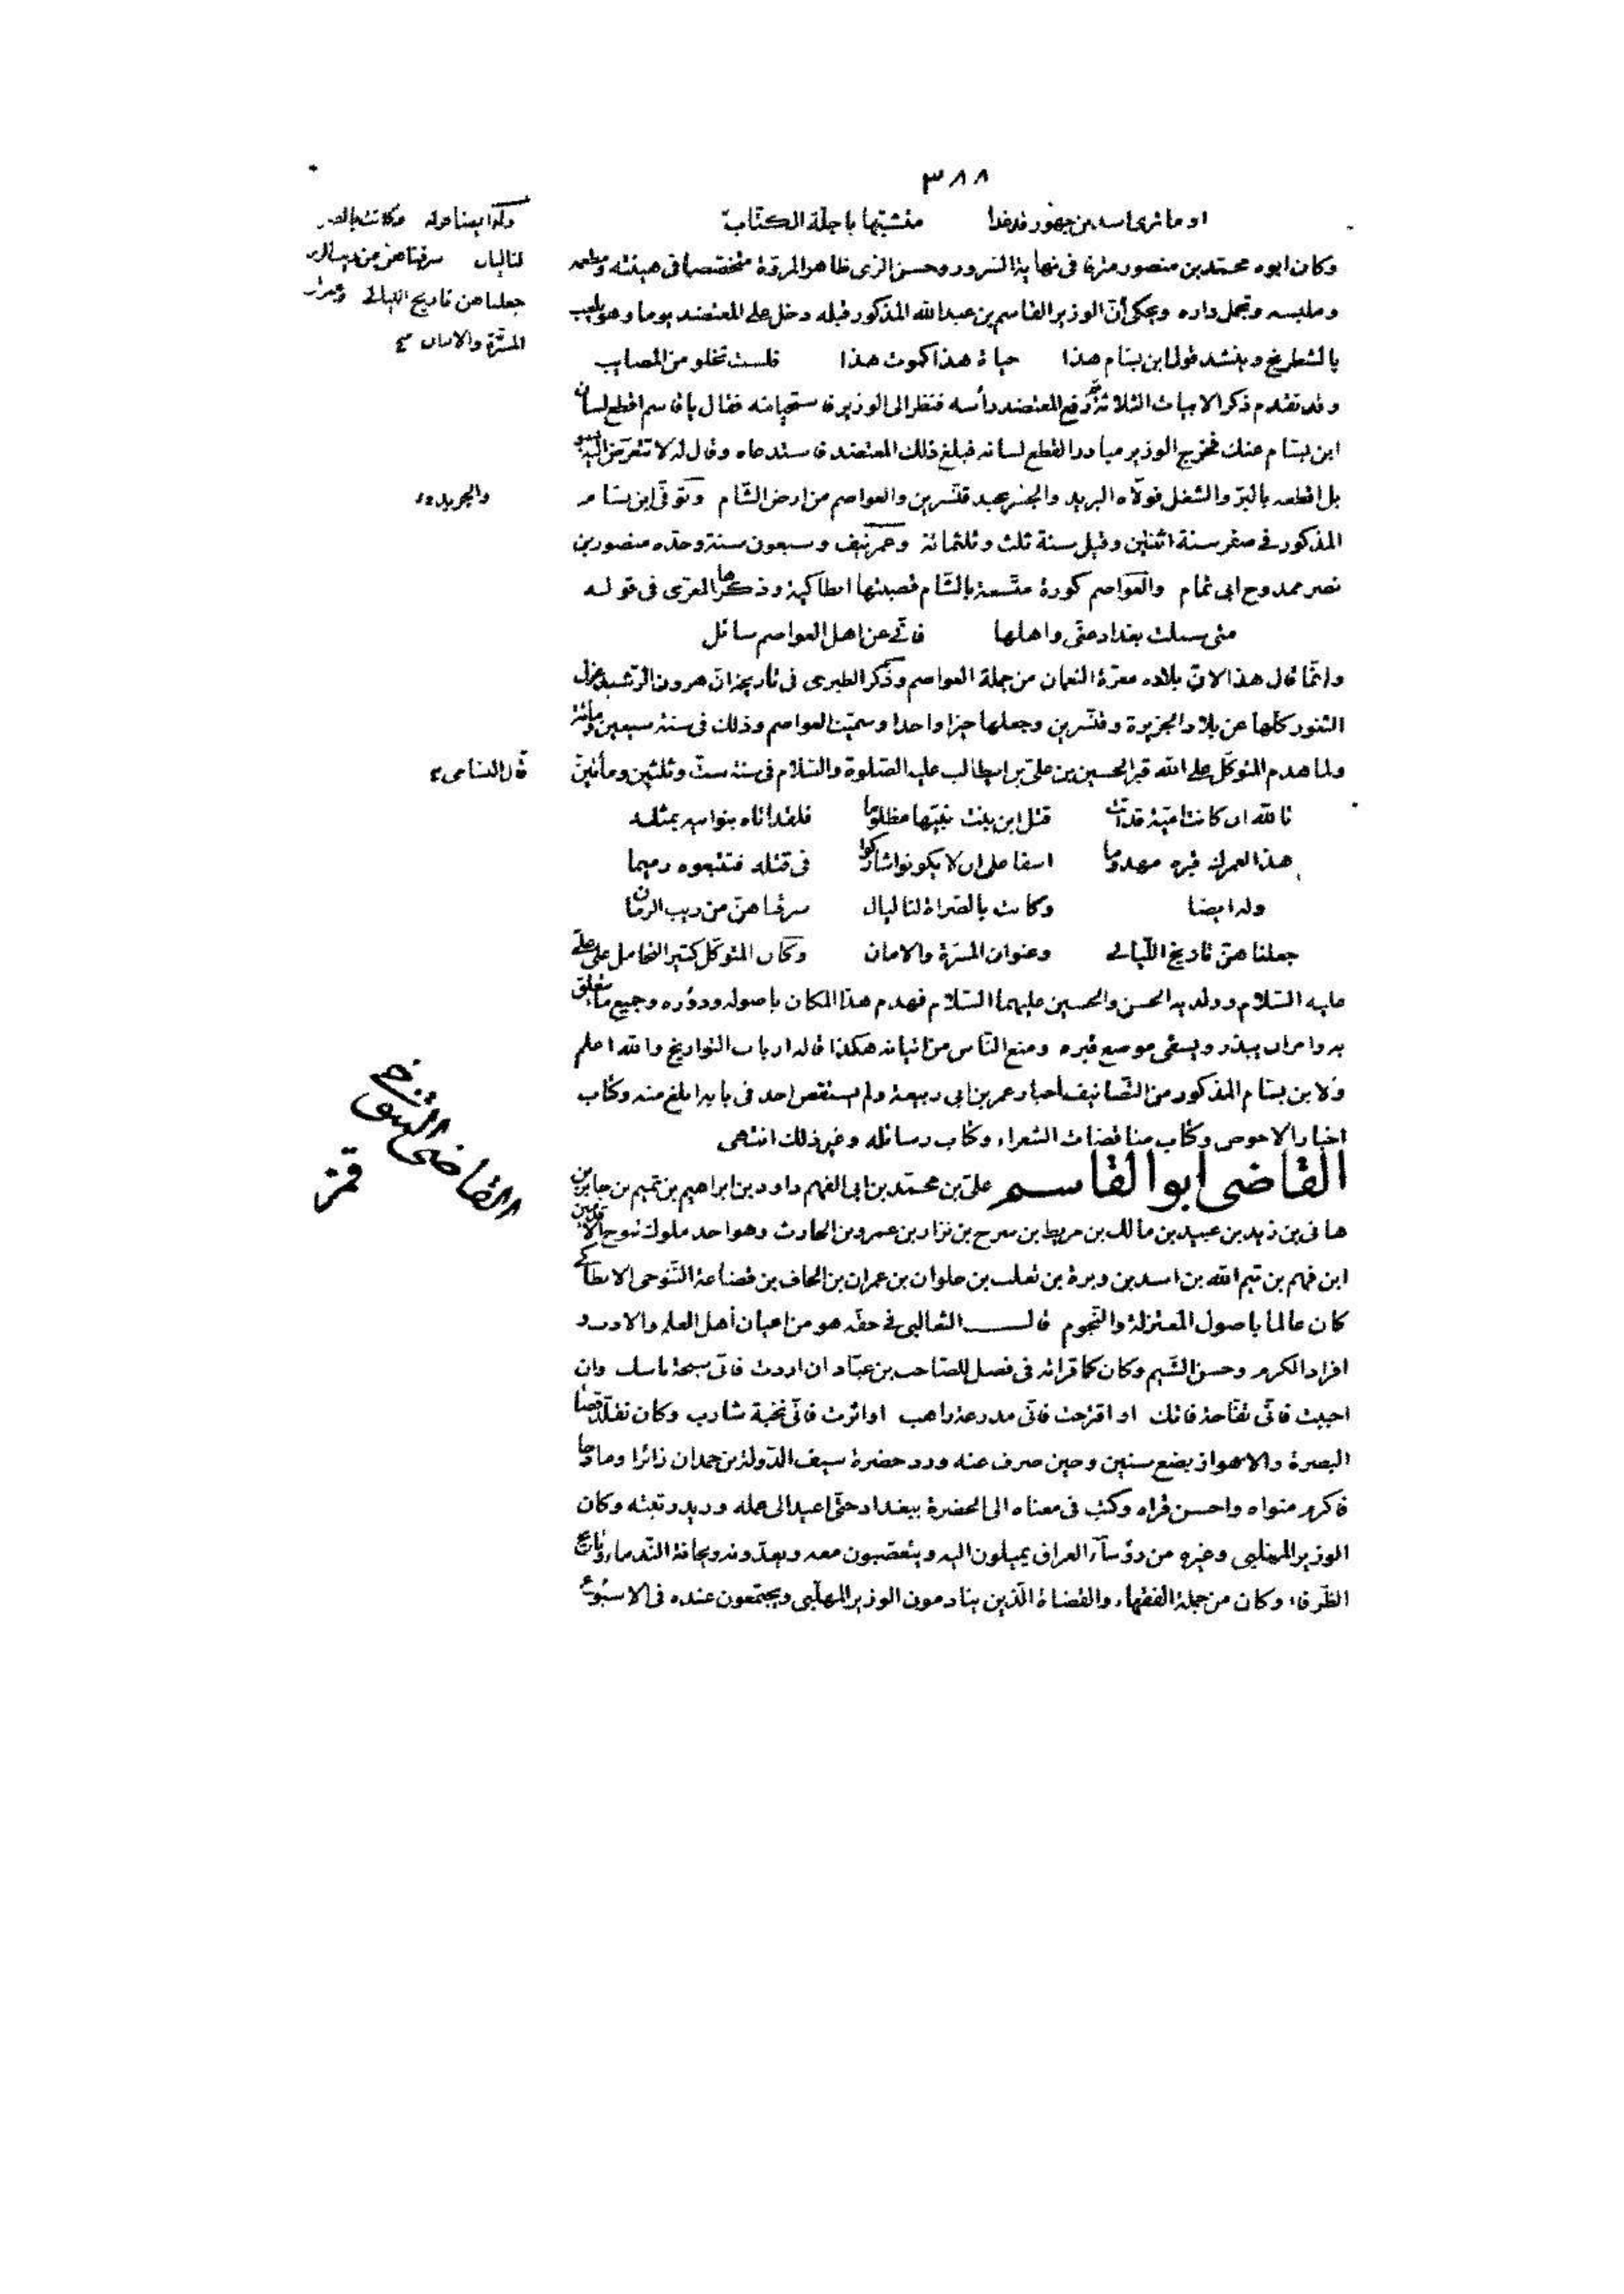 ٣٨٨
او ما ترى اسد بن جهور قد غدا متشبّها باجلّة الكتّاب
وكان ابوه محمّد بن منصور مترفا فى نهاية السرور وحسن الزى ظاهر المروّة متخصصا فى هيئته ومطعمه
وملبسه وتجمل داره ويحكى أنّ الوزير القاسم بن عبد الله المذكور قبله دخل على المعتضد يوما وهو يلعب
بالشطرنج وينشد قول ابن بسام هذا حياة هذا كموت هذا فلست تخلو من المصايب
وقد تقدم ذكر الابيات الثلاثة ثم رفع المعتضد رأسه فنظر الى الوزير فاستحيا منه فقال يا قاسم اقطع لسان
ابن بسّام عنك فخرج الوزير مبادرا لقطع لسانه فبلغ ذلك المعتضد فاستدعاه وقال له لا تتعرّض اليه بسوء
بل اقطعه بالبرّ والشغل فولّاه البريد والجسر بجند قنّسرين والعواصم من ارض الشّام وتوفّى ابن بسّام
المذكور فى صفر سنة اثنتين وقيل سنة ثلث وثلثمائة وعمر نيف وسبعون سنة وجدّه منصور بن
نصر ممدوح ابى تمام والعواصم كورة متّسعة بالشّام قصبتها انطاكية وذكرها المعرّى فى قوله
متى سئلت بغداد عنّى واهلها فانّى عن اهل العواصم سائل
وانّما قال هذا لانّ بلاده معرّة النعمان من جملة العواصم وذكر الطبرى فى تاريخه انّ هرون الرّشيد عزل
الثغور كلّها عن بلاد الجزيرة وقنّسرين وجعلها حيزا واحدا وسمّيت العواصم وذلك فى سنة سبعين ومائة
ولما هدم المتوكّل على الله قبر الحسين بن علىّ بن ابيطالب عليه الصّلوة والسّلام فى سنة ستّ وثلثين ومأتين
تالله ان كانت اميّة قد اتت قتل ابن بنت نبيّها مظلوما فلقد اتاه بنو ابيه بمثله
هذا لعمرك قبره مهدوما اسفا على ان لا يكونوا شاركوا فى قتله فتتبعوه رميما
وله ايضا وكانت بالصّراة لنا ليال سرقناهنّ من ريب الزمان
جعلناهنّ تاريخ اللّيالى وعنوان المسرّة والامان وكان المتوكّل كثير التحامل على علىّ
عليه السّلام وولديه الحسن والحسين عليهما السّلام فهدم هذا المكان باصوله ودوره وجميع ما يتعلق
به وامر ان يبذر ويسقى موضع قبره ومنع النّاس من اتيانه هكذا قاله ارباب التواريخ والله اعلم
ولابن بسّام المذكور من التّصانيف أخبار عمر بن ابى ربيعة ولم يستقص احد فى بابه ابلغ منه وكتاب
اخبار الاحوص وكتاب مناقضات الشعراء وكتاب رسائله وغير ذلك انتهى
القاضى ابو القاسم علىّ بن محمّد بن ابى الفهم داود بن ابراهيم بن تميم بن جابر بن
هانى بن زيد بن عبيد بن مالك بن مريط بن سرح بن نزار بن عمرو بن الحارث وهو احد ملوك تنوخ الاقدمين
ابن فهم بن تيم الله بن اسد بن وبرة بن تغلب بن حلوان بن عمران بن الحاف بن قضاعة التّنوخى الانطاكى
كان عالما باصول المعتزلة والنّجوم قال الثعالبى فى حقّه هو من اعيان أهل العلم والادب و
افراد الكرم وحسن الشّيم وكان كما قراته فى فصل للصّاحب بن عبّاد ان اردت فانّى سبحة ناسك وان
احببت فانّى تفّاحة فاتك او اقترحت فانّى مدرعة راهب او اثرت فانّى نخبة شارب وكان تقلّد قضا
البصرة والاهواز بضع سنين وحين صرف عنه ورد حضرة سيف الدّولة بن حمدان زائرا ومادحا
فاكرم مثواه واحسن قراه وكتب فى معناه الى الحضرة ببغداد حتّى اعيد الى عمله وزيد رتبته وكان
الوزير المهلبى وغيره من رؤساء العراق يميلون اليه ويتعصّبون معه ويعدّونه ريحانة النّدماء وتاريخ
الظّرفاء وكان من جملة الفقهاء والقضاة الّذين ينادمون الوزير المهلّبى ويجتمعون عنده فى الاسبوع
وله ايضا وكانت
لنا ليال سرقناهنّ من ريب
جعلناهن تاريخ الليالى
المسّرة والامان
قال السّامى
القاضى التنوخى